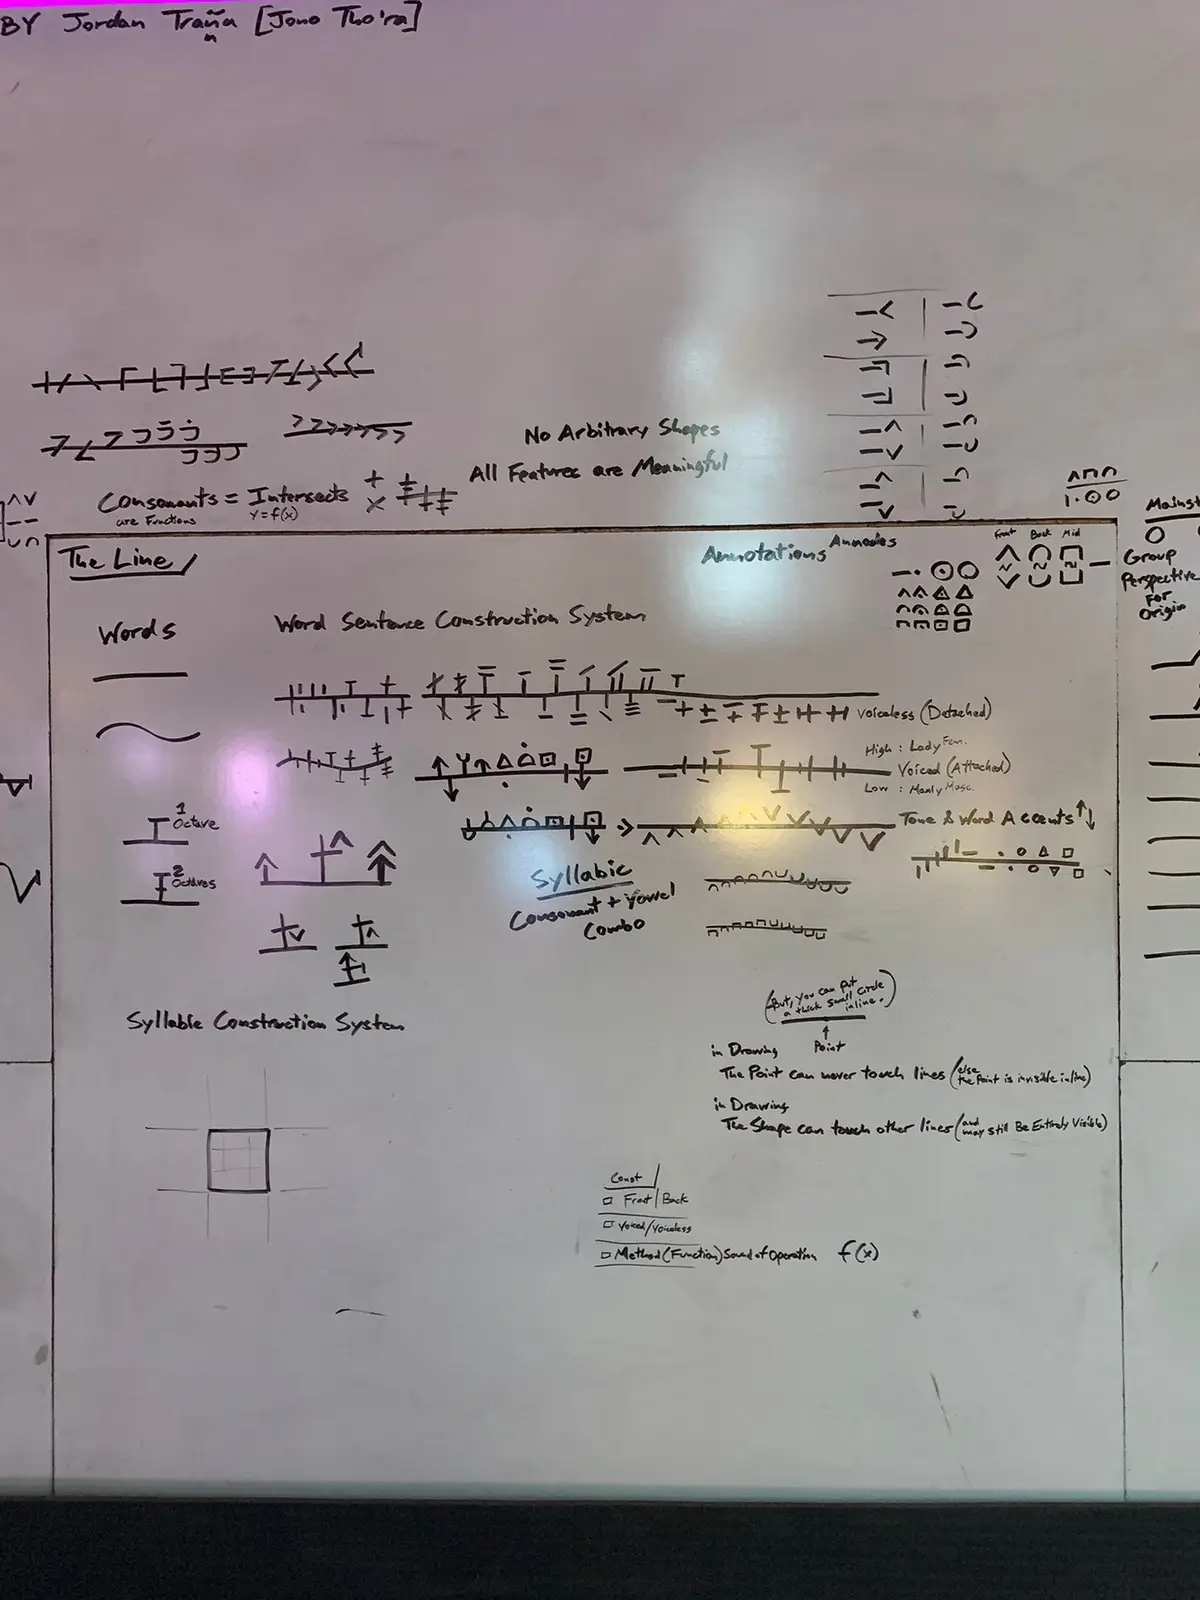 BY Jordan Traña [Jono Tho'ra]
No Arbitrary Shapes
All Features are Meaningful
Consonants = Intersects
are Functions
Y=f(x)
The Line
Annotations
Front Back Mid
Mainst
Group
Perspective
For
Origin
Words
Word Sentence Construction System
Voiceless (Detached)
High : Lady Fem.
Voiced (Attached)
Low : Manly Masc.
1 Octave
2 Octaves
Tone & Word Accents ↑↓
Syllabic
Consonant + Vowel
Combo
Syllable Construction System
(But, you can put
a thick small circle
inline.)
Point
in Drawing
The Point can never touch lines (else the Point is invisible inline)
in Drawing
The Shape can touch other lines (and may still Be Entirely Visible)
Const
Front/Back
Voiced/Voiceless
Method (Function) Sound of Operation f(x)